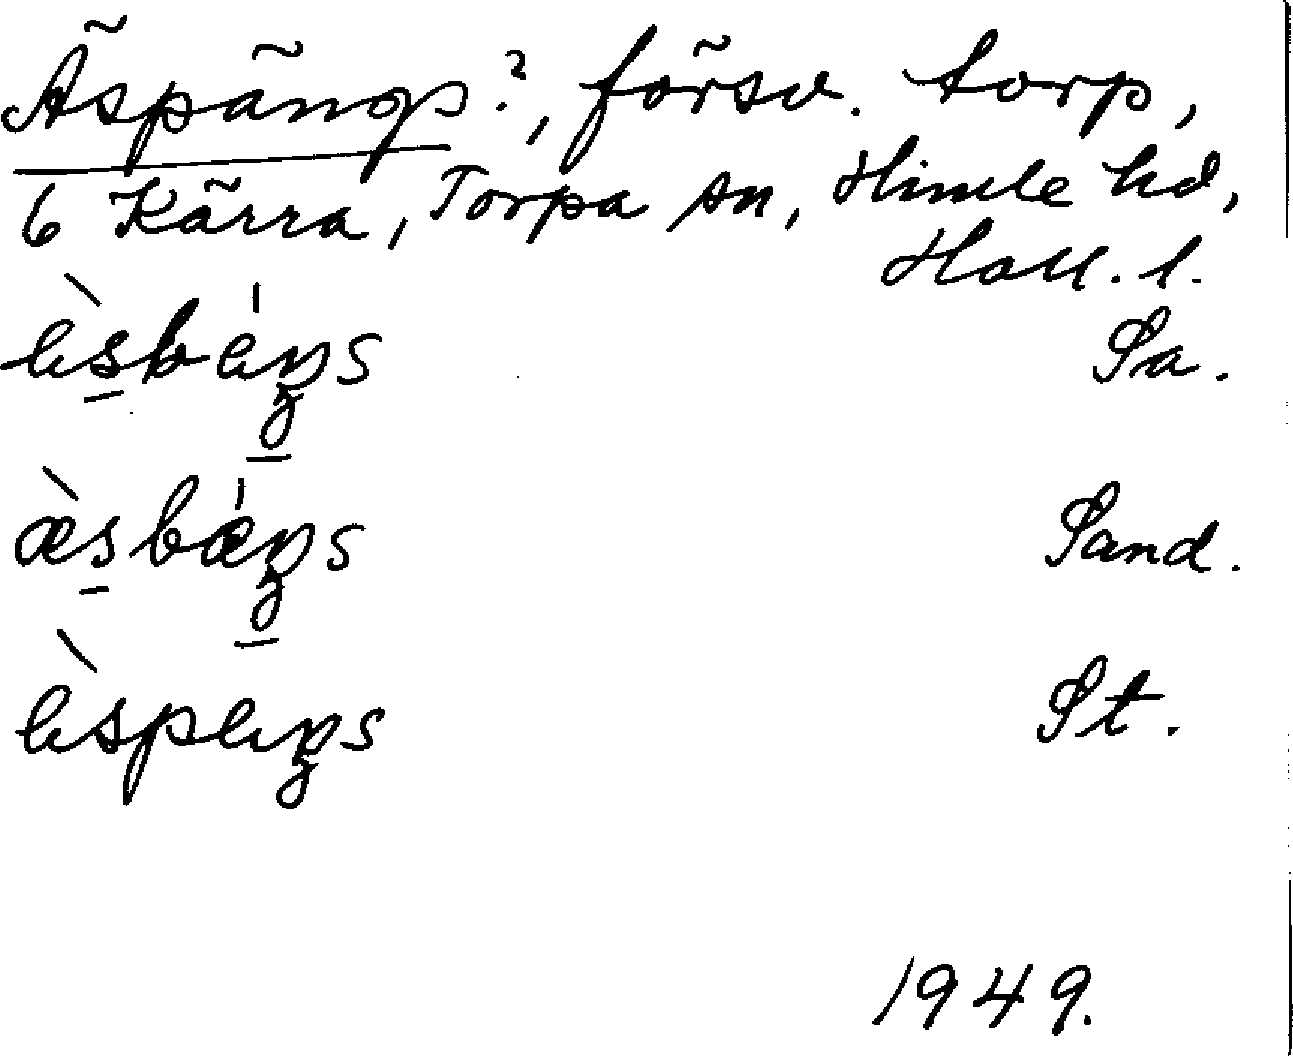 Äspängs?, försv. torp,
6 Kärra, Torpa sn, Himle hd,
Hall. l.
èsbéŋs Sa.
æ̀sbǽŋs Sand.
èspeŋs St.
1949.